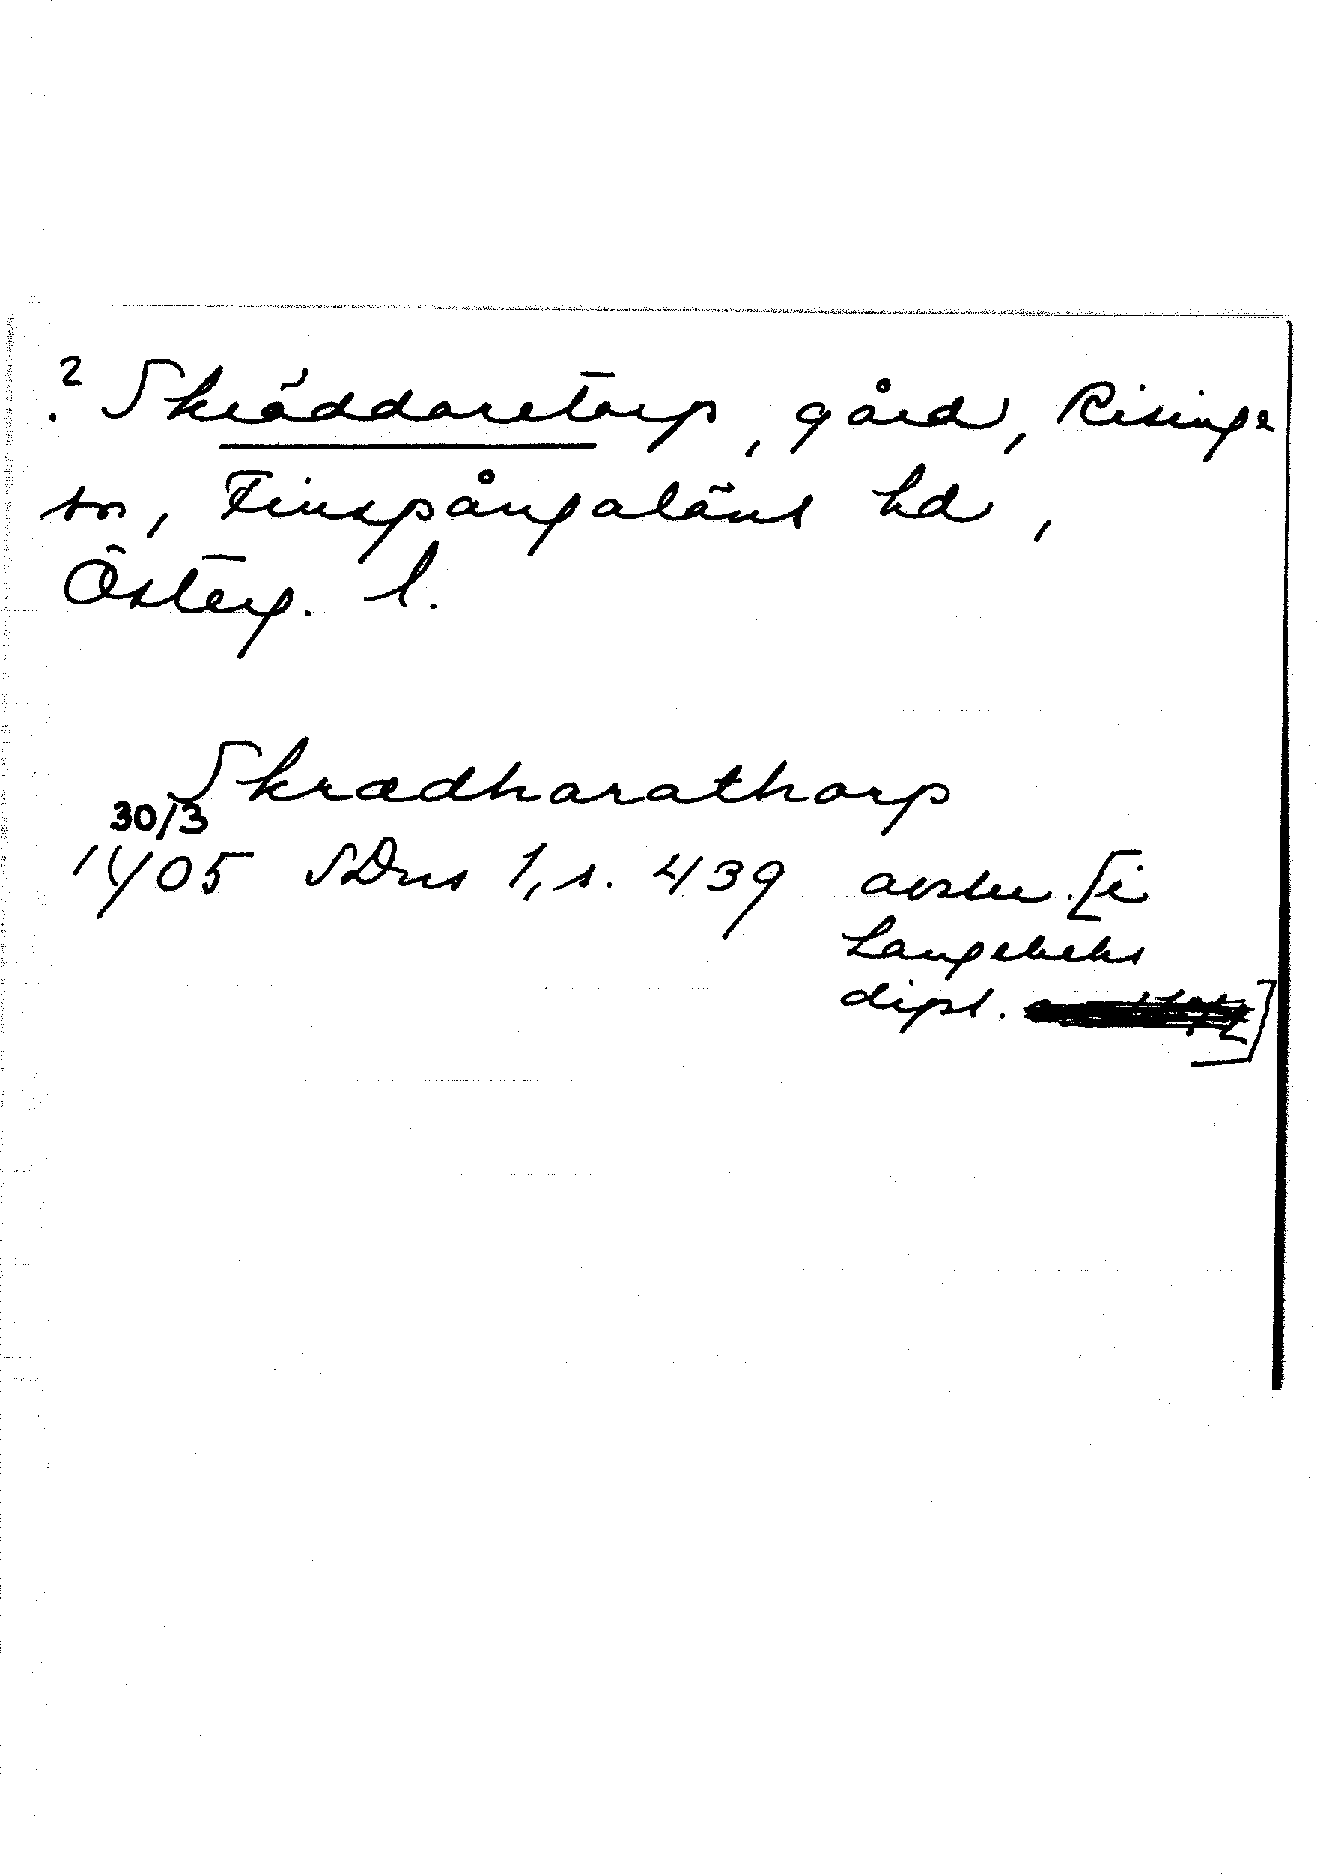 ? Skräddaretorp, gård, Risinge
sn, Finspångaläns hd,
Österg. l.
Skrædharathorp
30/3
1405 SDns 1, s. 439 avskr. [i
Langebeks
dipl. ]